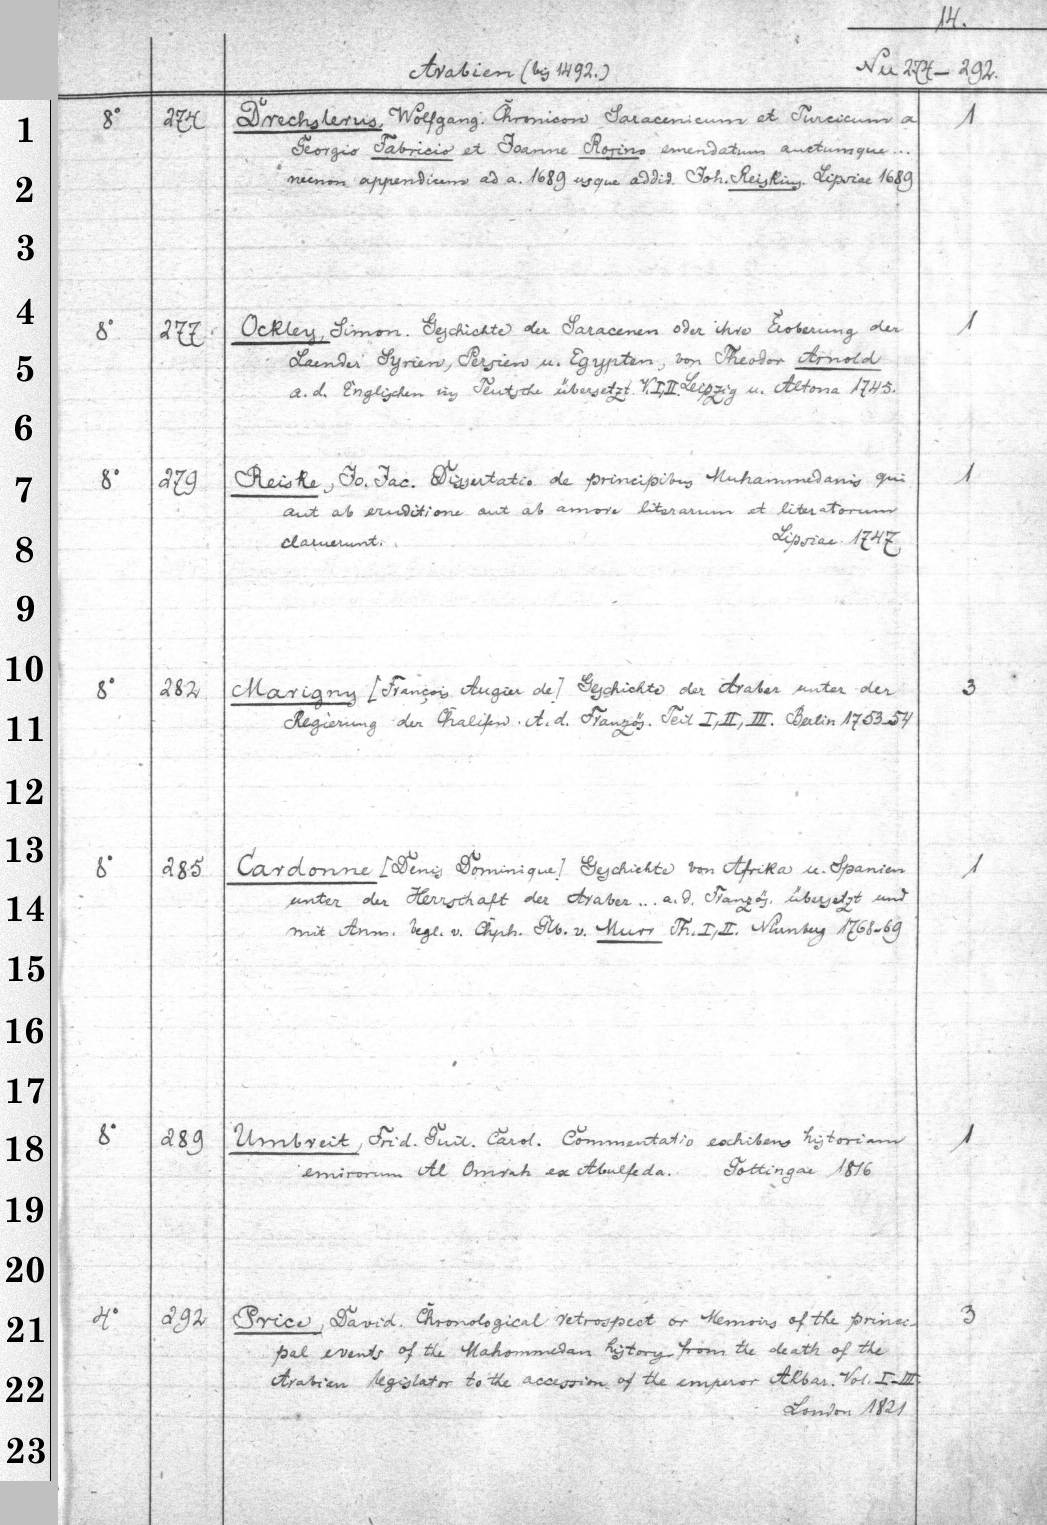 14.
Arabien (bis 1492.) Nu 274–292.
1
8° 274 Drechslerus, Wolfgang. Chronicon Saracenicum et Turcicum a 1
Georgio Fabricio et Joanne Rosino emendatum auctumque...
2
necnon appendicem ad a. 1689 usque addid. Joh. Reiskius. Lipsiae 1689
3
4
8° 277 Ockley, Simon. Geschichte der Saracenen oder ihre Eroberung der 1
5
Laender Syrien, Persien u. Egypten, von Theodor Arnold
a. d. Englischen ins Teutsche übersetzt. V. I, II. Leipzig u. Altona 1745.
6
7
8° 279 Reiske, Jo. Jac. Dissertatio de principibus Muhammedanis qui 1
aut ab eruditione aut ab amore literarum et literatorum
8
claruerunt. Lipsiae 1747
9
10
8° 282 Marigny [François Augier de] Geschichte der Araber unter der 3
11
Regierung der Chalifen. A. d. Französ. Teil I, II, III. Berlin 1753–54
12
13
8° 285 Cardonne [Denis Dominique] Geschichte von Afrika u. Spanien 1
14
unter der Herrschaft der Araber... a. d. Französ. übersetzt und
mit Anm. begl. v. Chph. Glb. v. Murr Th. I, II. Nürnberg 1768–69
15
16
17
18
8° 289 Umbreit, Frid. Guil. Carol. Commentatio exhibens historiam 1
emirorum Al Omrah ex Abulfeda. Gottingae 1816
19
20
21
4° 292 Price, David. Chronological retrospect or Memoirs of the princi- 3
pal events of the Mahommedan history from the death of the
22
Arabian legislator to the accession of the emperor Akbar. Vol. I–III.
London 1821
23